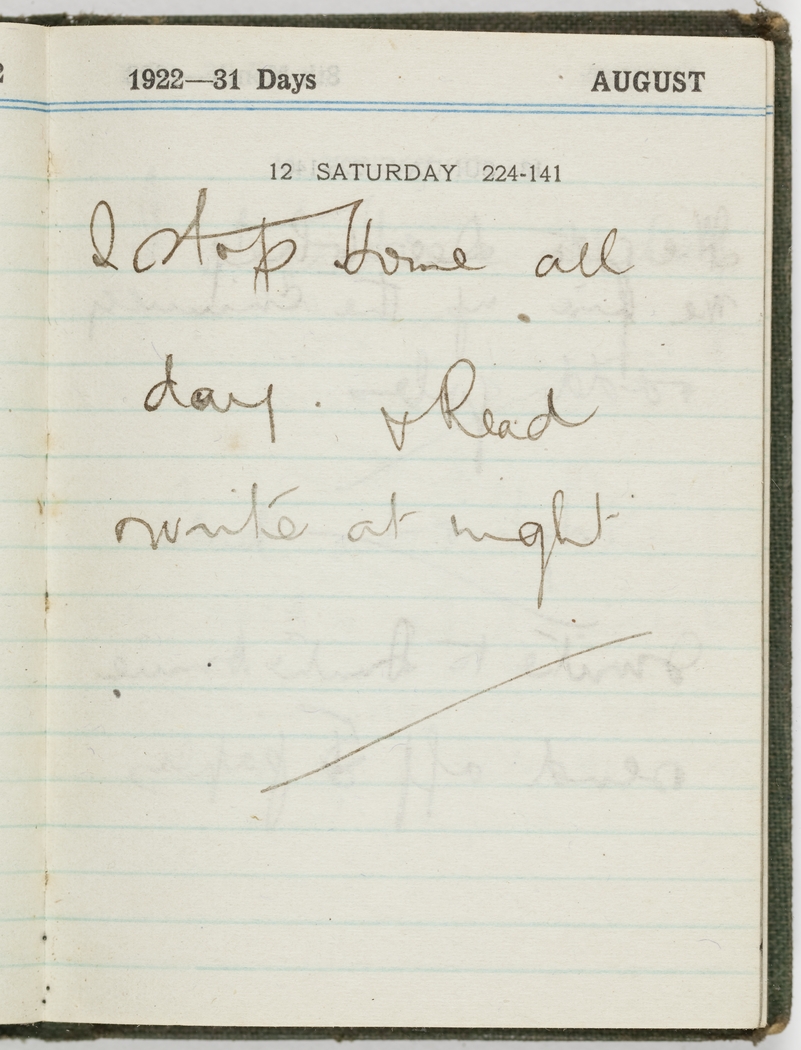 1922—31 Days AUGUST
12 SATURDAY 224-141
I stop Home all
day. & Read
write at night